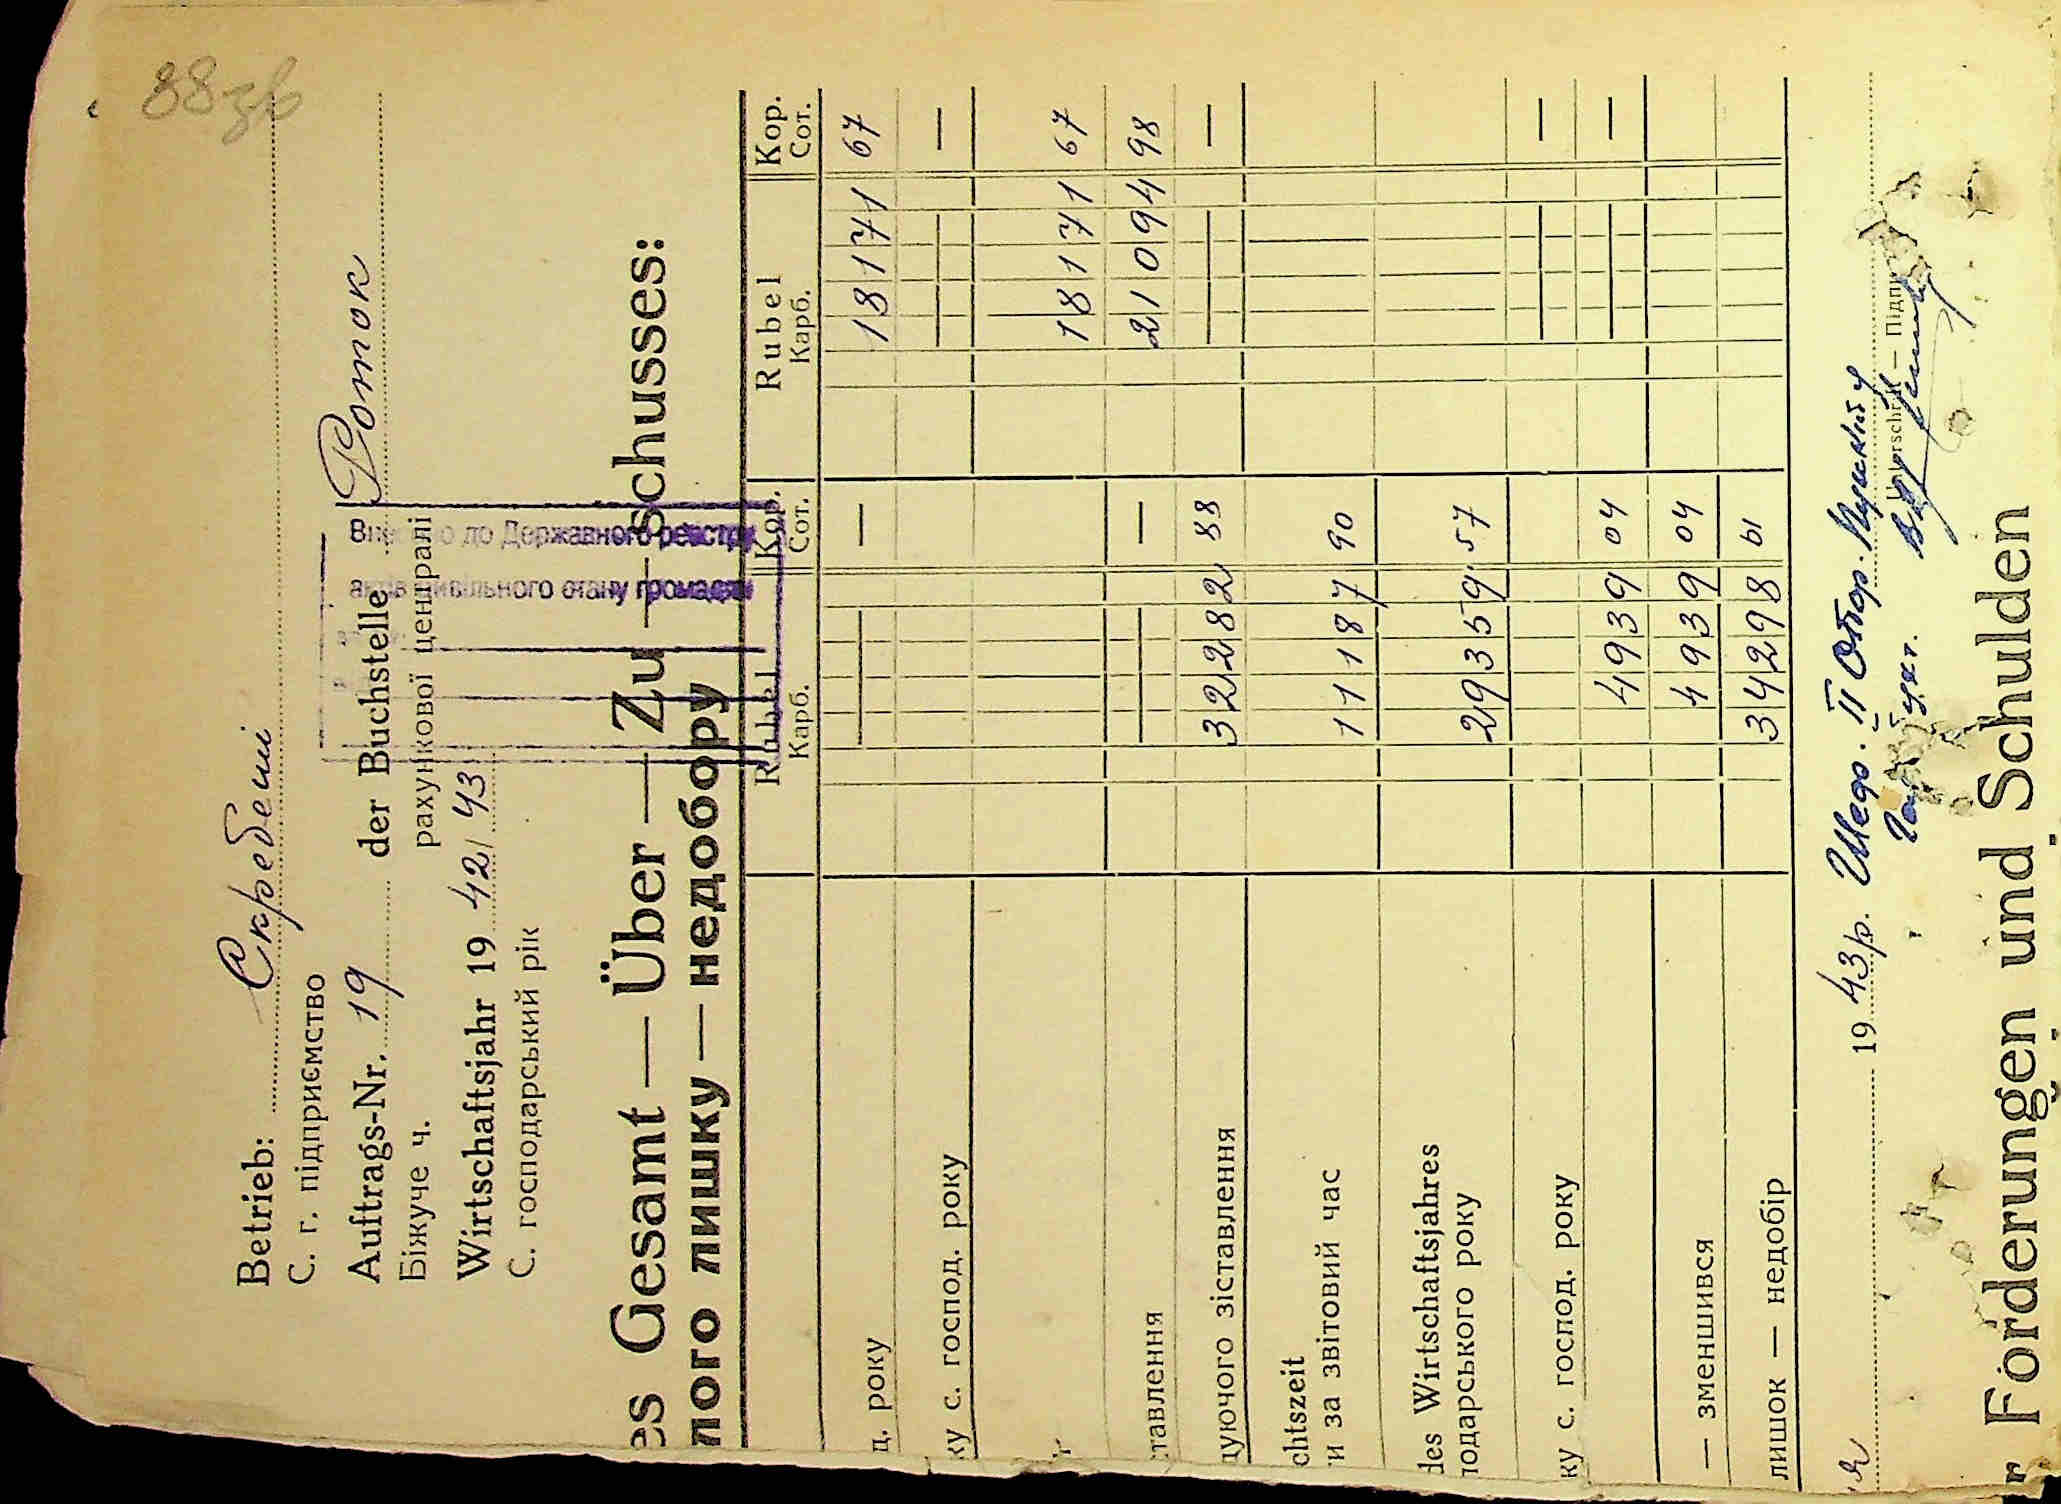 88зв
Betrieb: Скребеші
С. г. підприємство
Auftrags-Nr. 19 der Buchstelle Роток
Біжуче ч. рахункової централі
Wirtschaftsjahr 19 42/43
С. господарський рік
до Державного реєстру
цивільного стану громадян
es Gesamt — Über — Zu — schusses:
лого лишку — недобору
Rubel Kop. Rubel Kop.
Карб. Сот. Карб. Сот.
ц. року — — 18171 67
ку с. господ. року — —
18171 67
тавлення — — 21094 98
дуючого зіставлення 32282 88 — —
chtszeit
и за звітовий час 11187 90
des Wirtschaftsjahres
подарського року 29359 57
ку с. господ. року — —
4939 04 — —
— зменшився 4939 04
лишок — недобір 34298 61
19 43р. Шеф. II Отор.
Unterschrift — Підпи
r Forderungen und Schulden